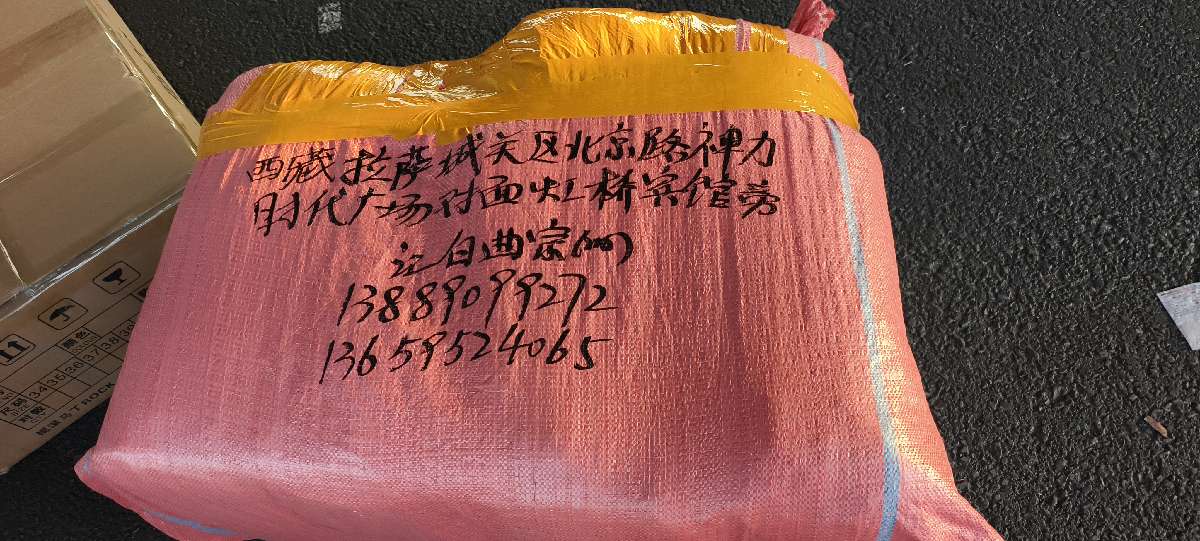 西藏拉萨城关区北京路神力
时代广场对面虹桥宾馆旁
白曲宗
13889099272
13659524065
颜色
34 35 36 37 38 39
尺码
TROCK